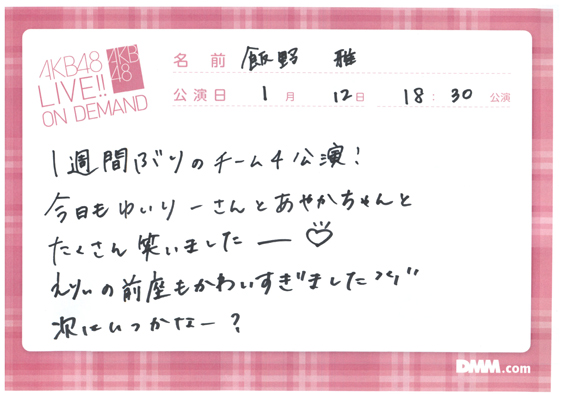 AKB48
LIVE!!
ON DEMAND
AKB
48
名 前 飯野 雅
公演日 1月 12日 18:30 公演
1週間ぶりのチーム4公演!
今日もゆいりーさんとあやかちゃんと
たくさん笑いましたー♡
の前座もかわいすぎました
次はいつかなー?
DMM.com